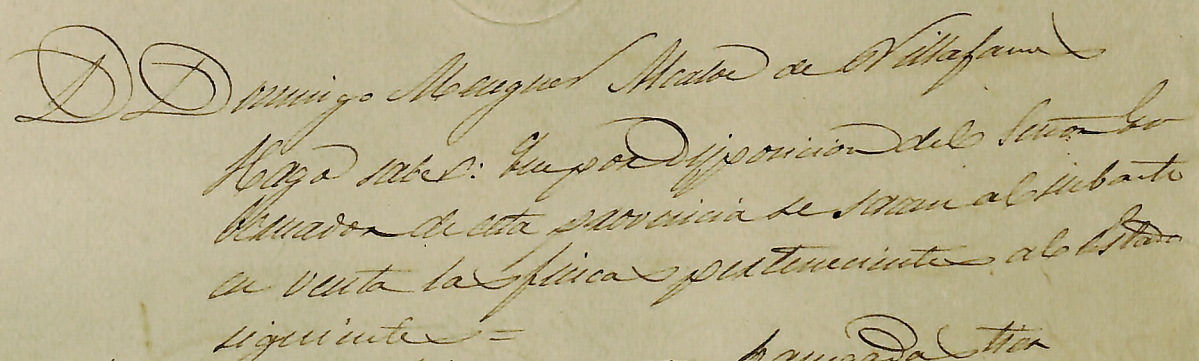 D Domingo Minguez Alcalde de Villafañe
Hago saber: Que por Disposicion del Señor Go
bernador de esta provincia se sacan al subasto
en venta la finca perteneciente al Estado
siguiente =